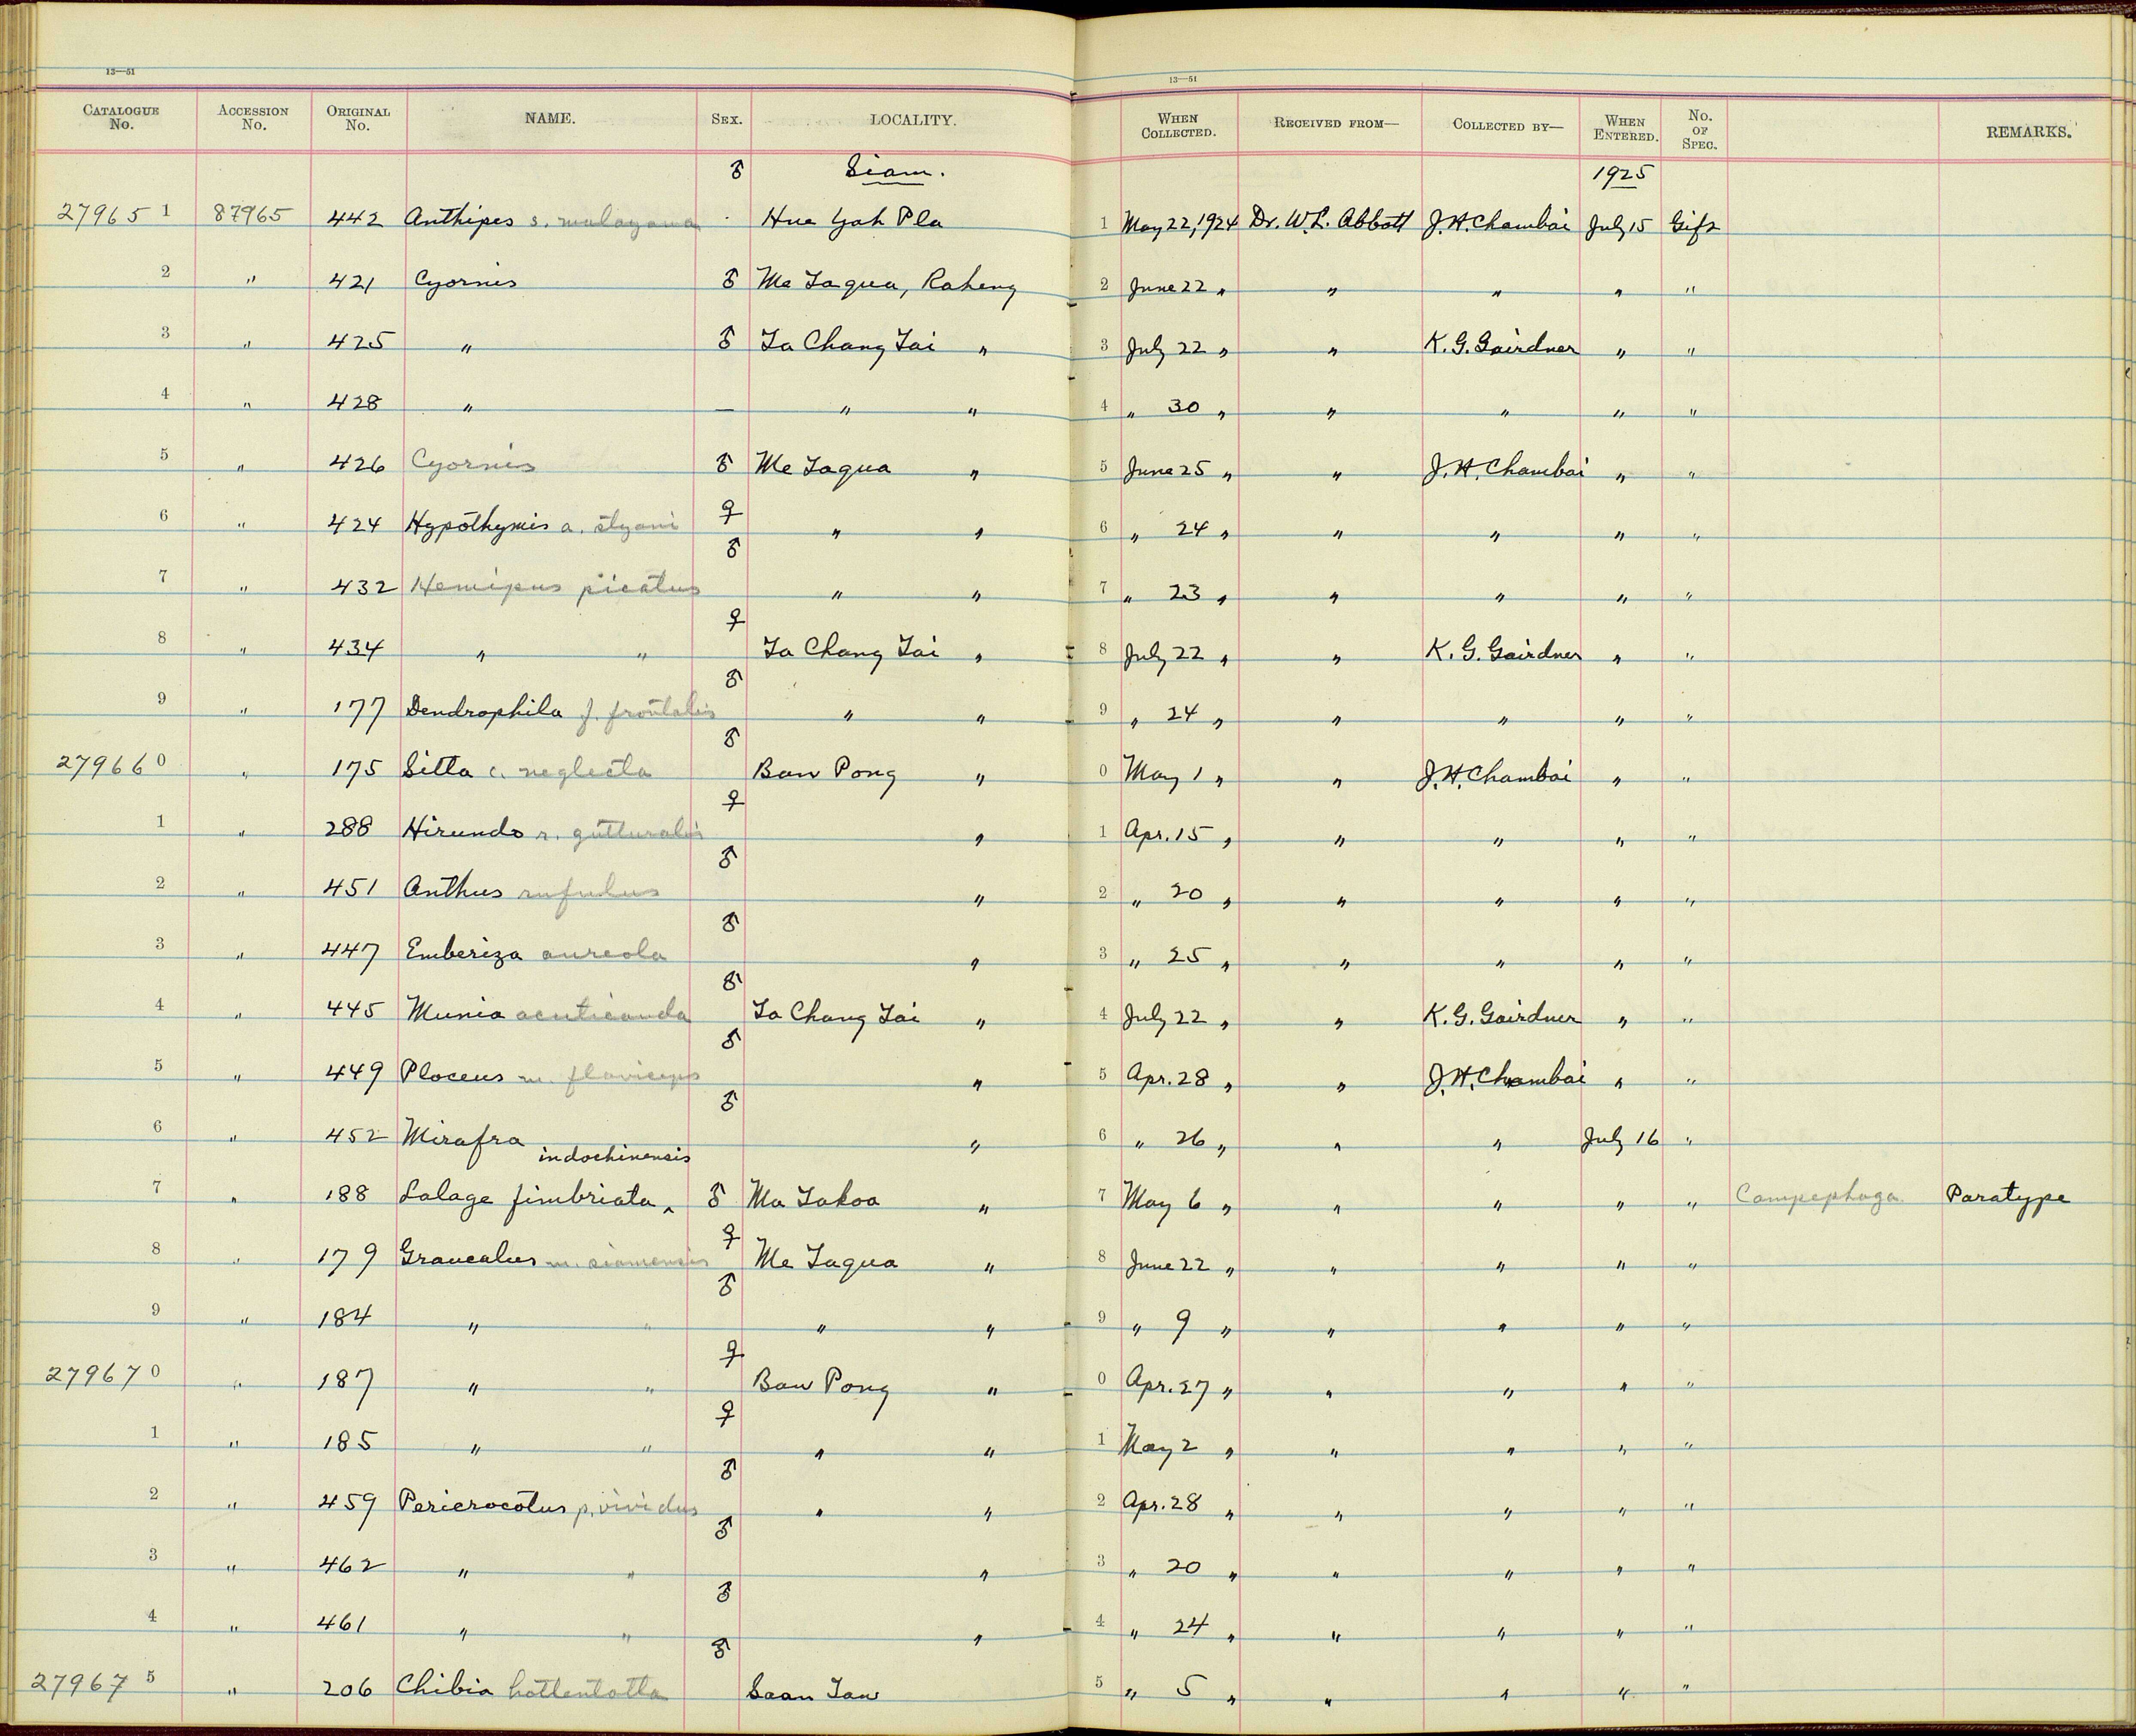 13—51 13—51
CATALOGUE No. ACCESSION No. ORIGINAL No. NAME. SEX. LOCALITY. WHEN COLLECTED. RECEIVED FROM— COLLECTED BY— WHEN ENTERED. No. OF SPEC. REMARKS.
♂ Siam. 1925
27965 1 87965 442 Anthipes s. malayana Hue Yah Pla 1 May 22, 1924 Dr. W.L. Abbott J.H. Chambai July 15 Gift
2 " 421 Cyornis ♂ Me Taqua, Raheng 2 June 22 " " " " "
3 " 425 " ♂ Ta Chang Tai " 3 July 22 " " K.G. Gairdner " "
4 " 428 " — " " 4 " 30 " " " " "
5 " 426 Cyornis ♂ Me Taqua " 5 June 25 " " J.H. Chambai " "
6 " 424 Hypothymis a. styani ♀ " " 6 " 24 " " " " "
7 " 432 Hemipus picatus ♂ " " 7 " 23 " " " " "
8 " 434 " " ♀ Ta Chang Tai " 8 July 22 " " K.G. Gairdner " "
9 " 177 Dendrophila f. frontalis ♂ " " 9 " 24 " " " " "
27966 0 " 175 Sitta c. neglecta ♂ Ban Pong " 0 May 1 " " J.H. Chambai " "
1 " 288 Hirundo r. gutturalis ♀ " 1 Apr. 15 " " " " "
2 " 451 Anthus rufulus ♂ " 2 " 20 " " " " "
3 " 447 Emberiza aureola ♂ " 3 " 25 " " " " "
4 " 445 Munia acuticauda ♂ Ta Chang Tai " 4 July 22 " " K.G. Gairdner " "
5 " 449 Ploceus m. flaviceps ♂ " 5 Apr. 28 " " J.H. Chambai " "
6 " 452 Mirafra ♂ " 6 " 26 " " " July 16 "
indochinensis
7 " 188 Lalage fimbriata ‸ ♂ Ma Takoa " 7 May 6 " " " " " Campephaga Paratype
8 " 179 Graucalus m. siamensis ♀ Me Taqua " 8 June 22 " " " " "
9 " 184 " " ♂ " " 9 " 9 " " " " "
27967 0 " 187 " " ♀ Ban Pong " 0 Apr. 27 " " " " "
1 " 185 " " ♀ " " 1 May 2 " " " " "
2 " 459 Pericrocotus p. vividus ♂ " " 2 Apr. 28 " " " " "
3 " 462 " " ♂ " 3 " 20 " " " " "
4 " 461 " " ♂ " 4 " 24 " " " " "
27967 5 " 206 Chibia hottentotta ♂ Saan Tan 5 " 5 " " " " "